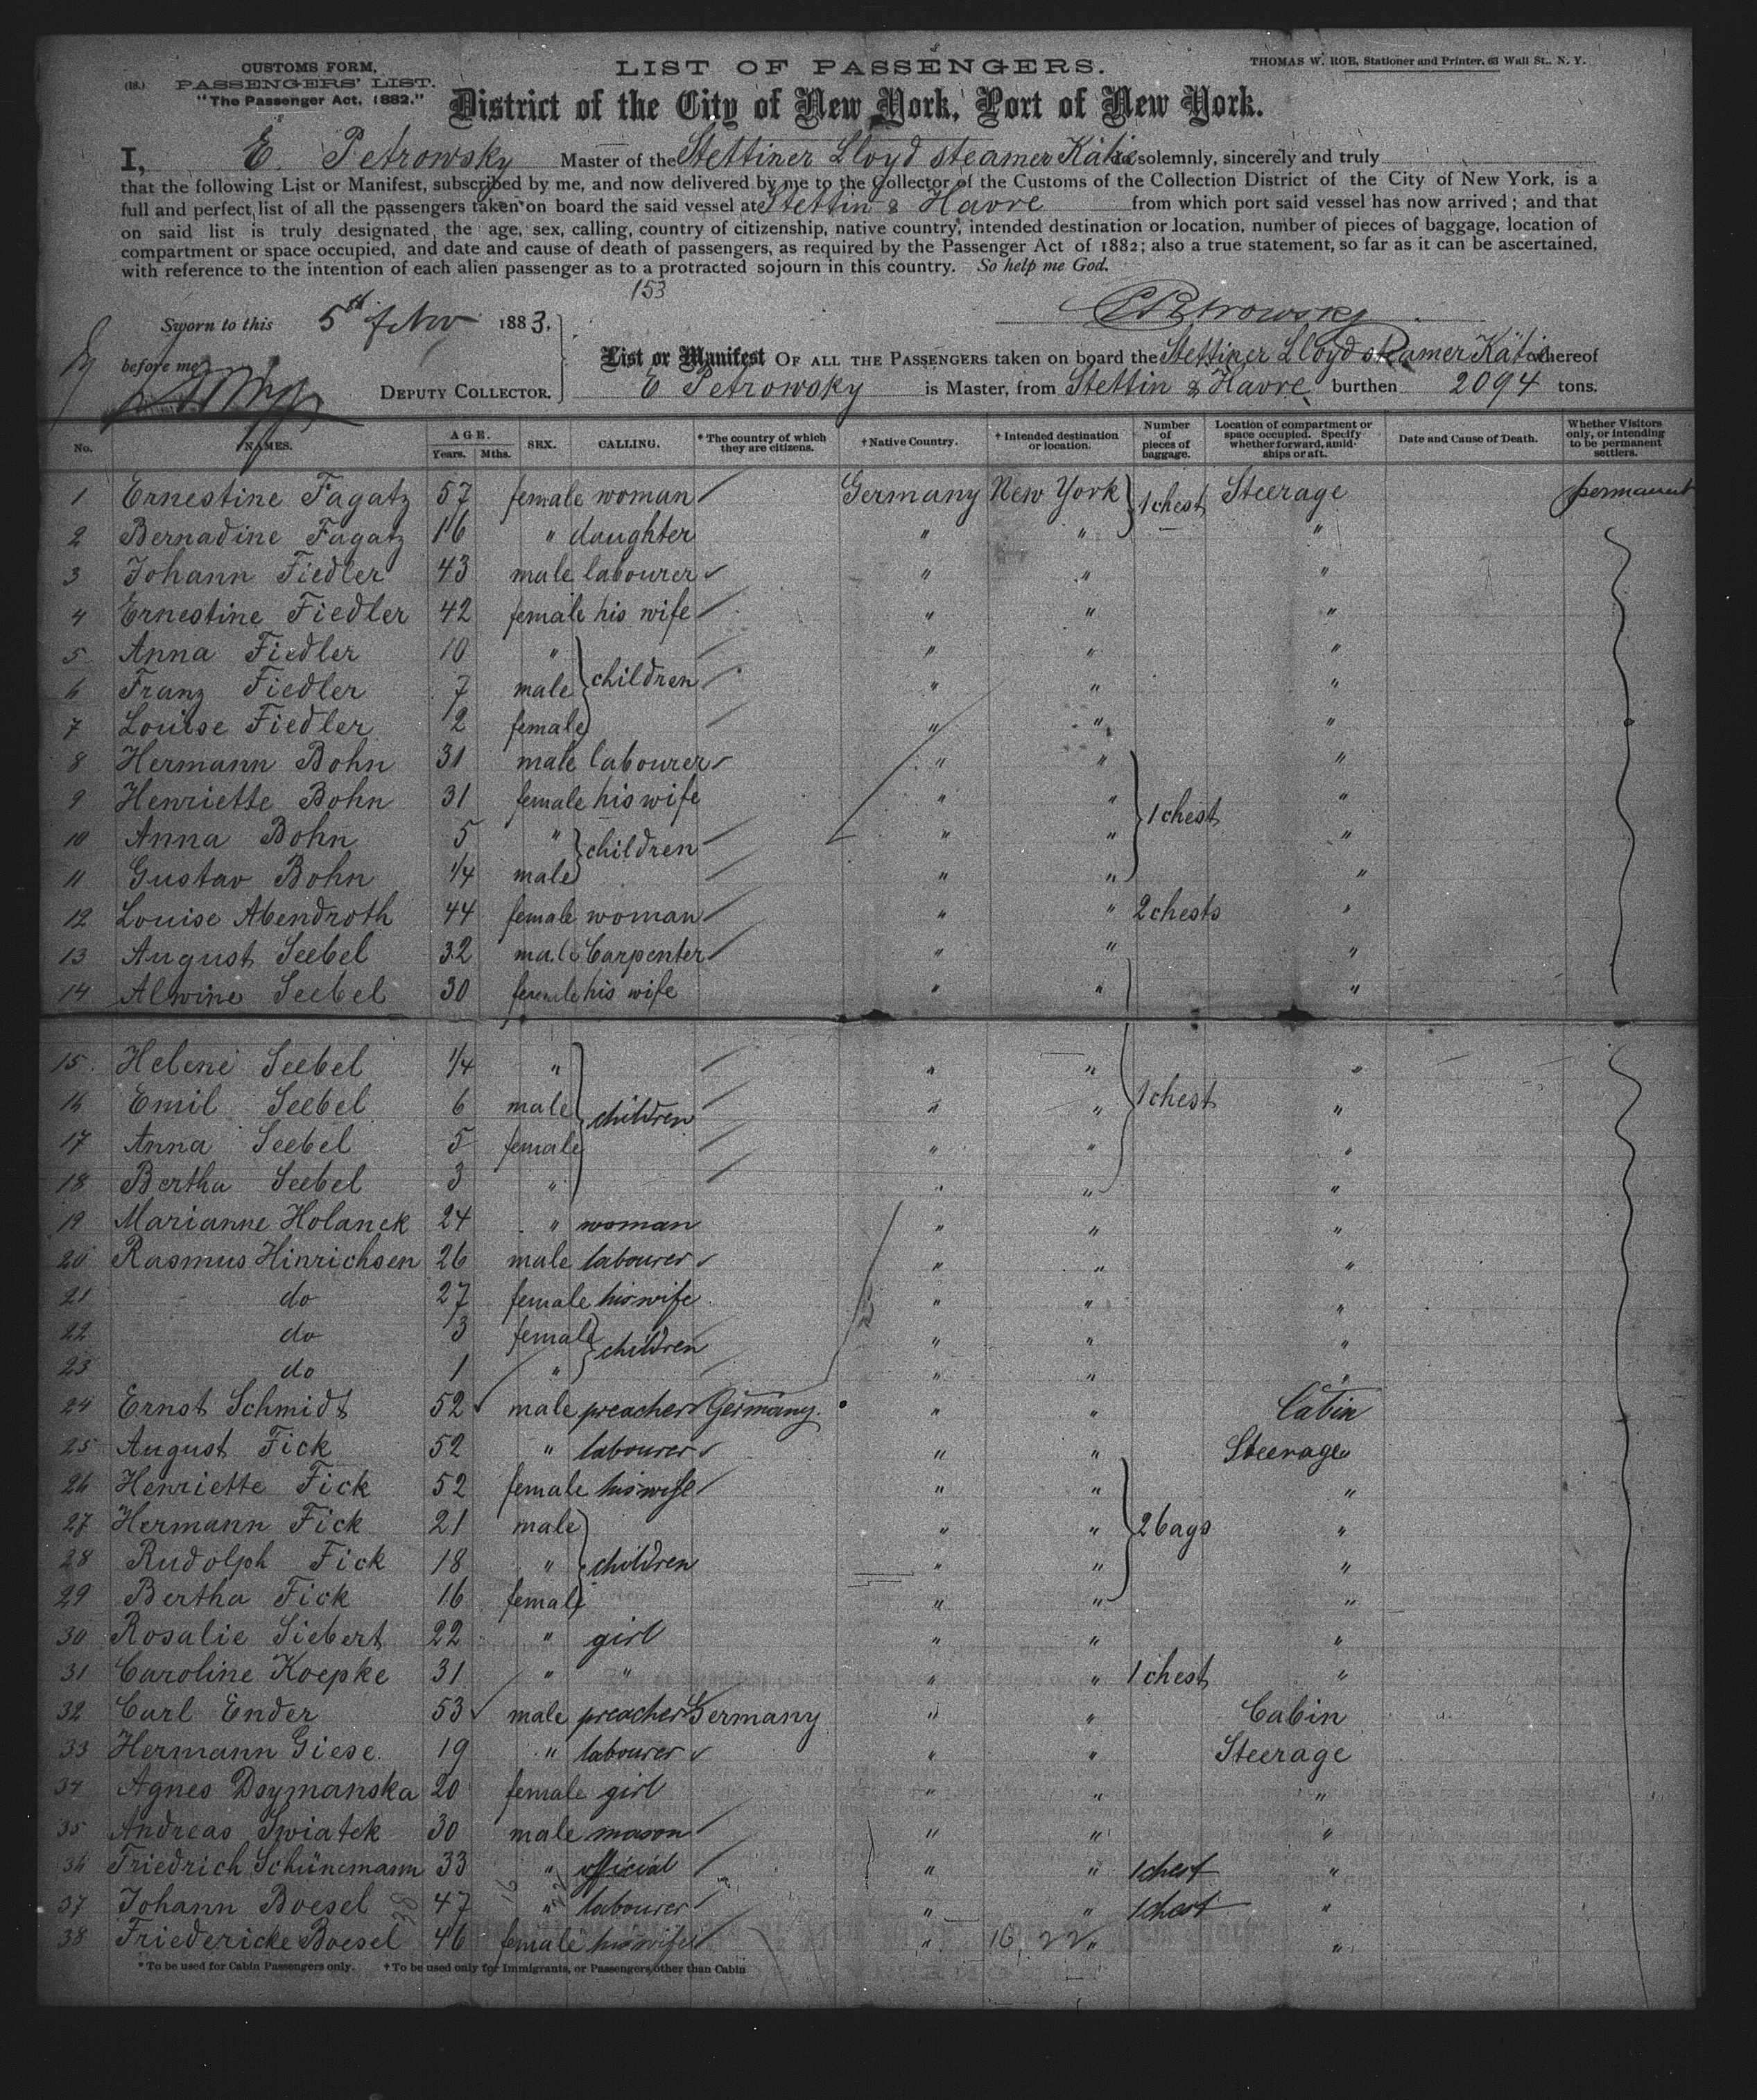 CUSTOMS FORM,
(18.) PASSENGERS' LIST.
"The Passenger Act, 1882."
LIST OF PASSENGERS.
THOMAS W. ROE, Stationer and Printer, 63 Wall St., N. Y.
District of the City of New York, Port of New York.
I, E. Petrowsky Master of the Stettiner Lloyd steamer Kätie do solemnly, sincerely and truly
that the following List or Manifest, subscribed by me, and now delivered by me to the Collector of the Customs of the Collection District of the City of New York, is a
full and perfect list of all the passengers taken on board the said vessel at Stettin & Havre from which port said vessel has now arrived; and that
on said list is truly designated the age, sex, calling, country of citizenship, native country, intended destination or location, number of pieces of baggage, location of
compartment or space occupied, and date and cause of death of passengers, as required by the Passenger Act of 1882; also a true statement, so far as it can be ascertained,
with reference to the intention of each alien passenger as to a protracted sojourn in this country. So help me God.
153
Sworn to this 5th Nov 1883,
E Petrowsky
before me
DEPUTY COLLECTOR.
List or Manifest OF ALL THE PASSENGERS taken on board the Stettiner Lloyd steamer Kätie whereof
E Petrowsky is Master, from Stettin & Havre burthen 2094 tons.
No. NAMES. AGE. Years. Mths. SEX. CALLING. * The country of which they are citizens. † Native Country. † Intended destination or location. Number of pieces of baggage. Location of compartment or space occupied. Specify whether forward, amidships or aft. Date and Cause of Death. Whether Visitors only, or intending to be permanent settlers.
1 Ernestine Fagatz 57 female woman Germany New York 1 chest Steerage permanent
2 Bernadine Fagatz 16 " daughter " " "
3 Johann Fiedler 43 male labourer " " "
4 Ernestine Fiedler 42 female his wife " " "
5 Anna Fiedler 10 " " " "
6 Franz Fiedler 7 male children " " "
7 Louise Fiedler 2 female " " "
8 Hermann Bohn 31 male labourer " " "
9 Henriette Bohn 31 female his wife " " 1 chest "
10 Anna Bohn 5 " children " " "
11 Gustav Bohn 1/4 male " " "
12 Louise Abendroth 44 female woman " " 2 chests "
13 August Seebel 32 male Carpenter " " "
14 Alwine Seebel 30 female his wife " " "
15 Helene Seebel 1/4 " " " "
16 Emil Seebel 6 male children " " 1 chest "
17 Anna Seebel 5 female " " "
18 Bertha Seebel 3 " " " "
19 Marianne Holanek 24 " woman " " "
20 Rasmus Hinrichsen 26 male labourer " " "
21 do 27 female his wife " " "
22 do 3 female children " " "
23 do 1 " " " "
24 Ernst Schmidt 52 male preacher Germany " " Cabin
25 August Fick 52 " labourer " " Steerage
26 Henriette Fick 52 female his wife " " "
27 Hermann Fick 21 male " " 2 bags "
28 Rudolph Fick 18 " children " " "
29 Bertha Fick 16 female " " "
30 Rosalie Siebert 22 " girl " " "
31 Caroline Koepke 31 " " " " 1 chest "
32 Carl Ender 53 male preacher Germany " " Cabin
33 Hermann Giese 19 " labourer " " Steerage
34 Agnes Dsymanska 20 female girl " " "
35 Andreas Swiatek 30 male mason " " "
36 Friedrich Schünemann 33 " official " " 1 chest "
37 Johann Boesel 47 " labourer " " 1 chest "
38 Friedericke Boesel 46 female his wife " 16, 22 " "
* To be used for Cabin Passengers only. † To be used only for Immigrants, or Passengers other than Cabin